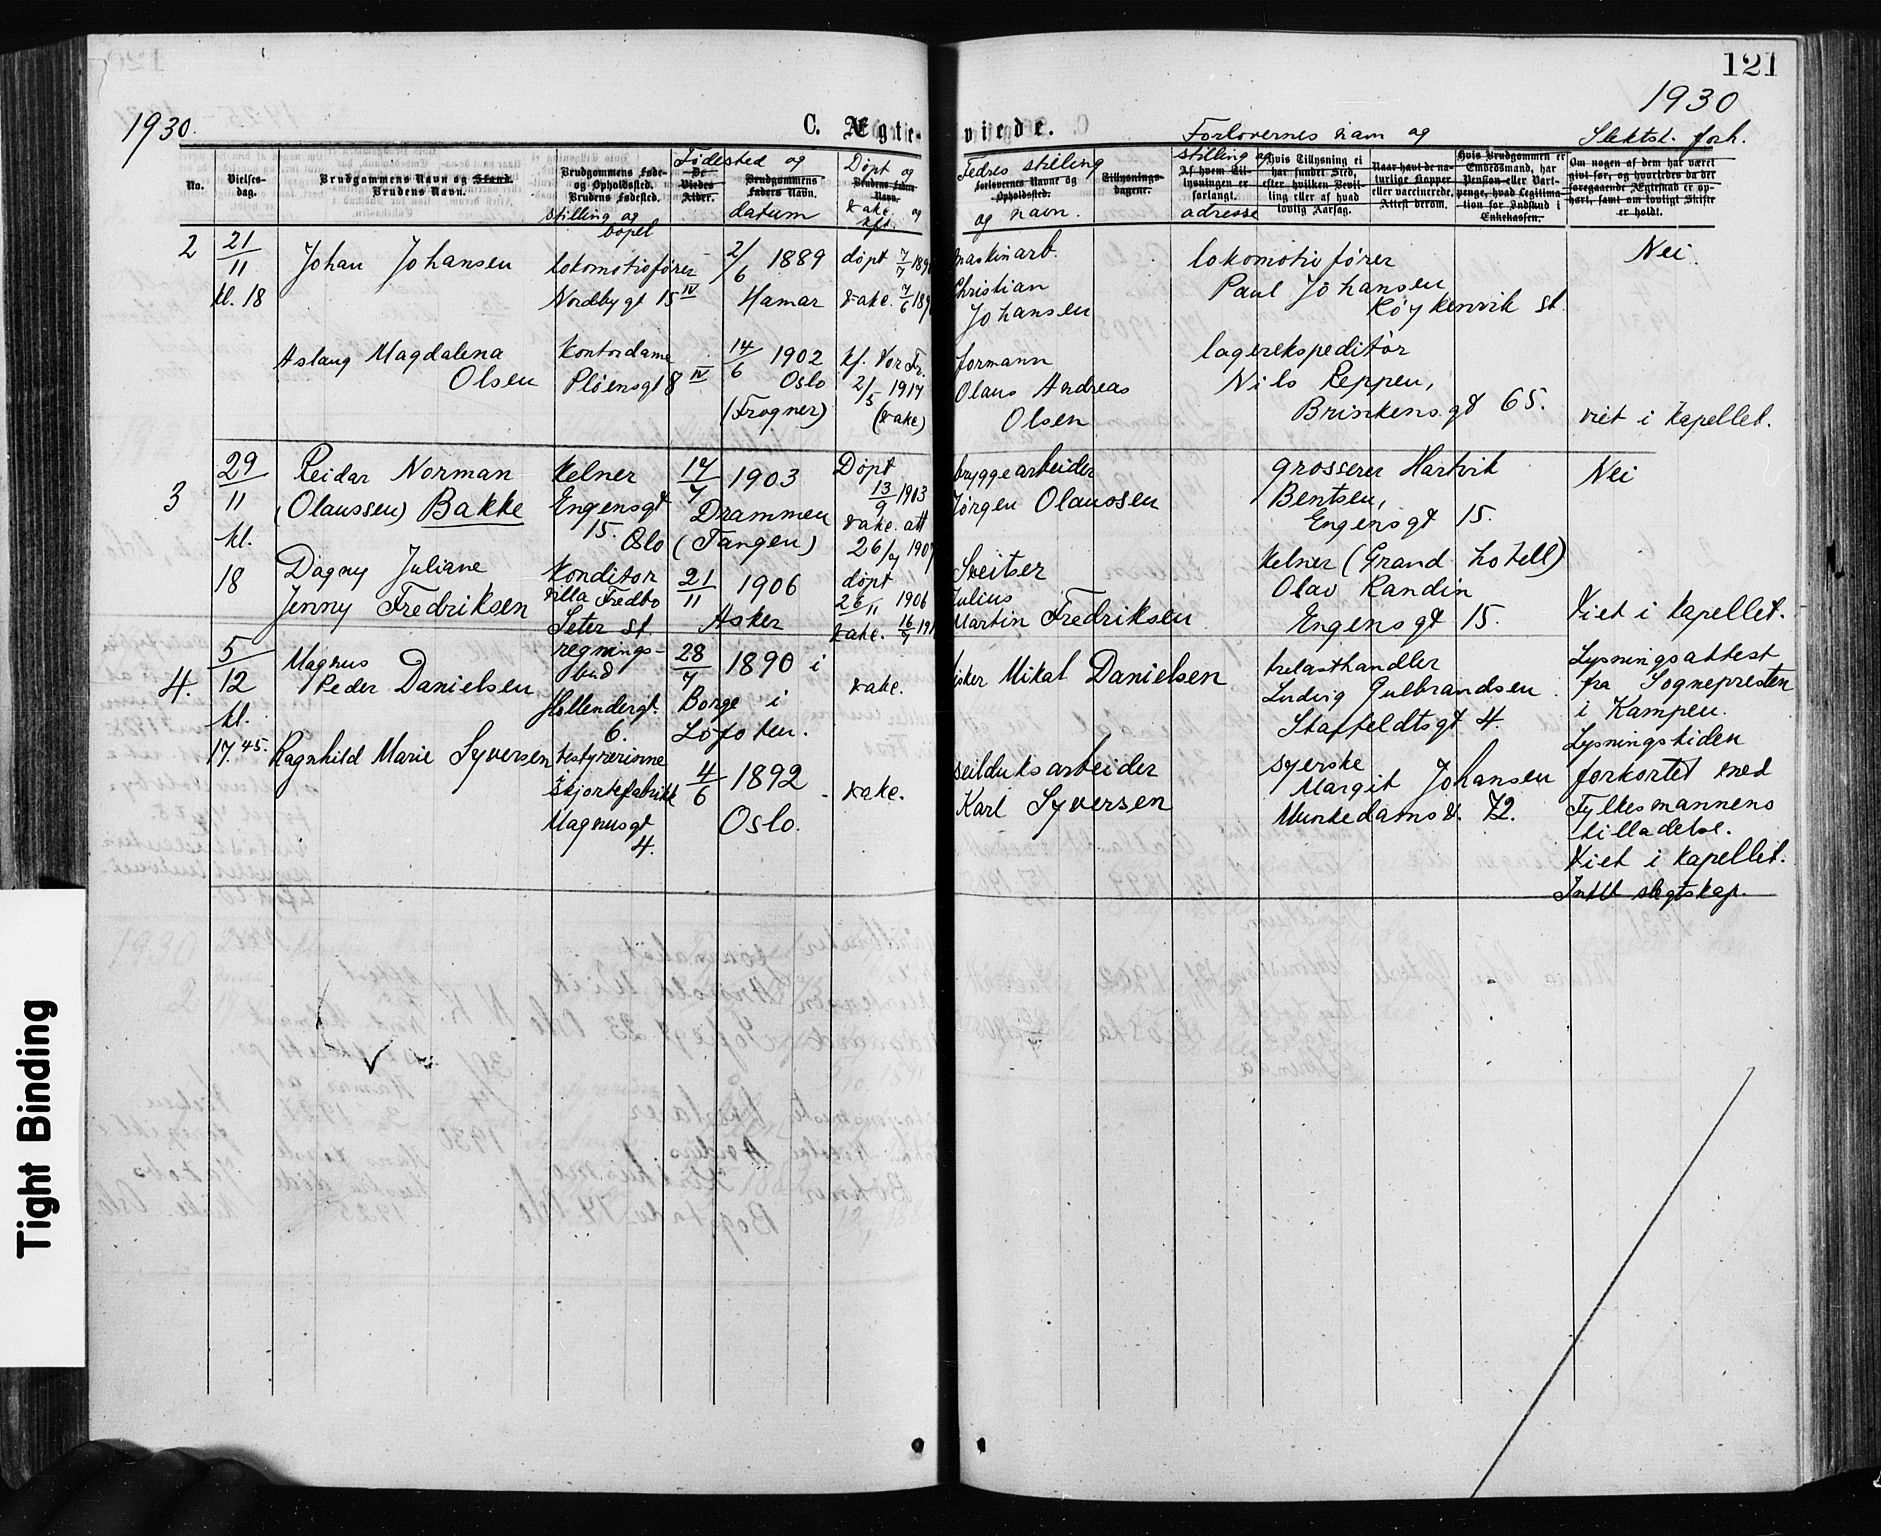 121
1930
1930.
C. Ægte-
viede.
No.
Vielses-
dag.
Brudgommens Navn og Stand.
Brudens Navn.
Brudgommens Føde-
og Opholdssted.
Brudens Fødested.
stilling og
bopel
Fødested og
De
Viedes
Alder.
Brudgommens
Faders Navn.
datum
Døpt og
Brudens Faders
Navn.
vake. og
kft.
Fedres stilling
Forlovernes Navne og
Opholdssted.
og navn.
Tillysnings-
dagene.
Forlovernes navn og
stilling og
Af hvem Til-
lysningen er
forlangt.
adresse
Hvis Tillysning ei
har fundet Sted,
efter hvilken Bevil-
ling eller af hvad
lovlig Aarsag.
Naar havt de na-
turlige Kopper
eller vaccinerede.
Attest derom.
Hvis Brudgommen er
Embedsmand, har
Pension eller Vart-
penge, hvad Legitima-
tion for Indskud i
Enkekassen.
Slektsk. forh.
Om nogen af dem har været
gift før, og hvorledes da det
foregaaende Ægteskab er op-
hørt, samt om lovligt Skifte
er holdt.
2
21/11
kl. 18
Johan Johansen
lokomotivfører
Nordbygt 15 IV
2/6 1889
Hamar
døpt 7/7 189
vake. 7/6 189
maskinarb.
Christian
Johansen
lokomotivfører
Paul Johansen
Røykenvik st
Nei.
Aslaug Magdalena
Olsen
Kontordame
Pløensgt 8 IV
14/6 1902
Oslo
(Frogner)
kf. Vor Fr.
2/5 1917
(vake)
formann
Olaus Andreas
Olsen
lagerekspeditør
Nils Reppen,
Brinkens gt 65.
viet i kapellet.
3
29/11
kl.
18
Reidar Norman
(Olaussen) Bakke
Kelner
Engensgt
15. Oslo
17/7 1903
Drammen
(Tangen)
Døpt
13/9 1903
vake. att
26/7 190
bryggearbeider
Jørgen Olaussen
grosserer Hartvik
Bentsen,
Engensgt 15.
Nei
Dagny Juliane,
Jenny Fredriksen
Konditor
Villa Fredbo
Seter st.
21/11 1906
Asker
døpt
26/11 1906
vake. 16/7 19
Sveitser
Julius
Martin Fredriksen
Kelner (Grand hotell)
Olav Randin
Engensgt 15.
Viet i kapellet.
4.
5/12
kl.
17.45.
Magnus
Peder Danielsen
regnings-
bud
Hollendergt.
6.
28/7 1890 i
Borge i
Lofoten.
vake.
fisker Mikal Danielsen
trelasthandler
Ludvig Gulbrandsen.
Staffeldtsgt 4.
Lysningsattest
fra Sognepresten
i Kampen.
Lysningstiden
forkortet med
Fylkesmannens
tilladelse.
Viet i kapellet.
Intet slegtskap.
Ragnhild Marie Syversen
bestyrerinne
i skjortefabrikk
Magnusgt
4.
4/6 1892
Oslo.
vake.
seilduksarbeider
Karl Syversen
syerske
Margit Johansen
Munkedamsv. 72.
Tight Binding